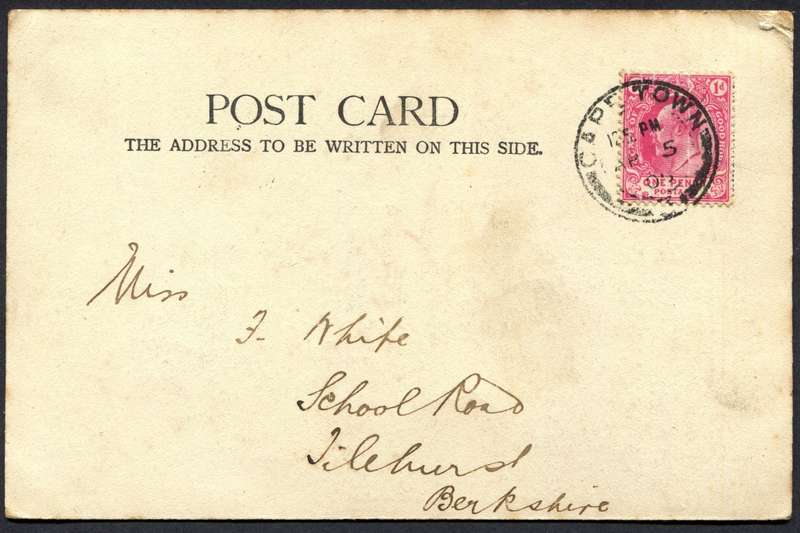 POST CARD
THE ADDRESS TO BE WRITTEN ON THIS SIDE.
1d
GOOD HOPE
ONE PEN
POSTA
CAPE TOWN
PM
5
Miss
F. White
School Road
Tilehurst
Berkshire